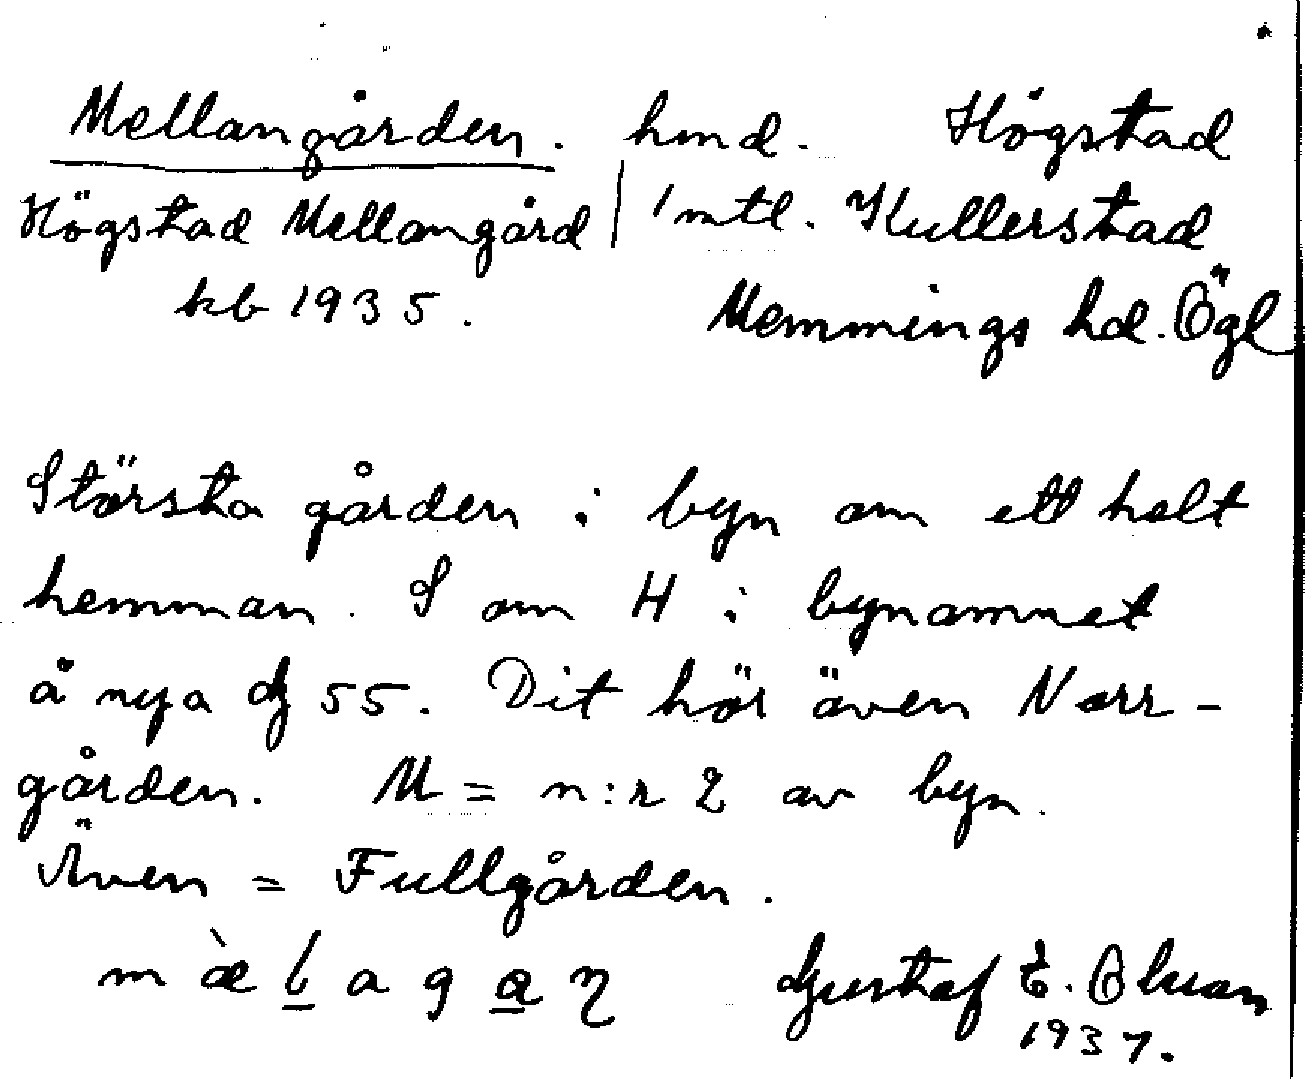 Mellangården. hmd. Högstad
Högstad Mellangård / 1 mtl. Kullerstad
kb 1935. Memmings hd. Ögl
Största gården i byn om ett helt
hemman. S om H i bynamnet
å nya dg 55. Dit hör även Norr-
gården. M = n:r 2 av byn.
Även = Fullgården.
Gustaf E. Olsson
1937.